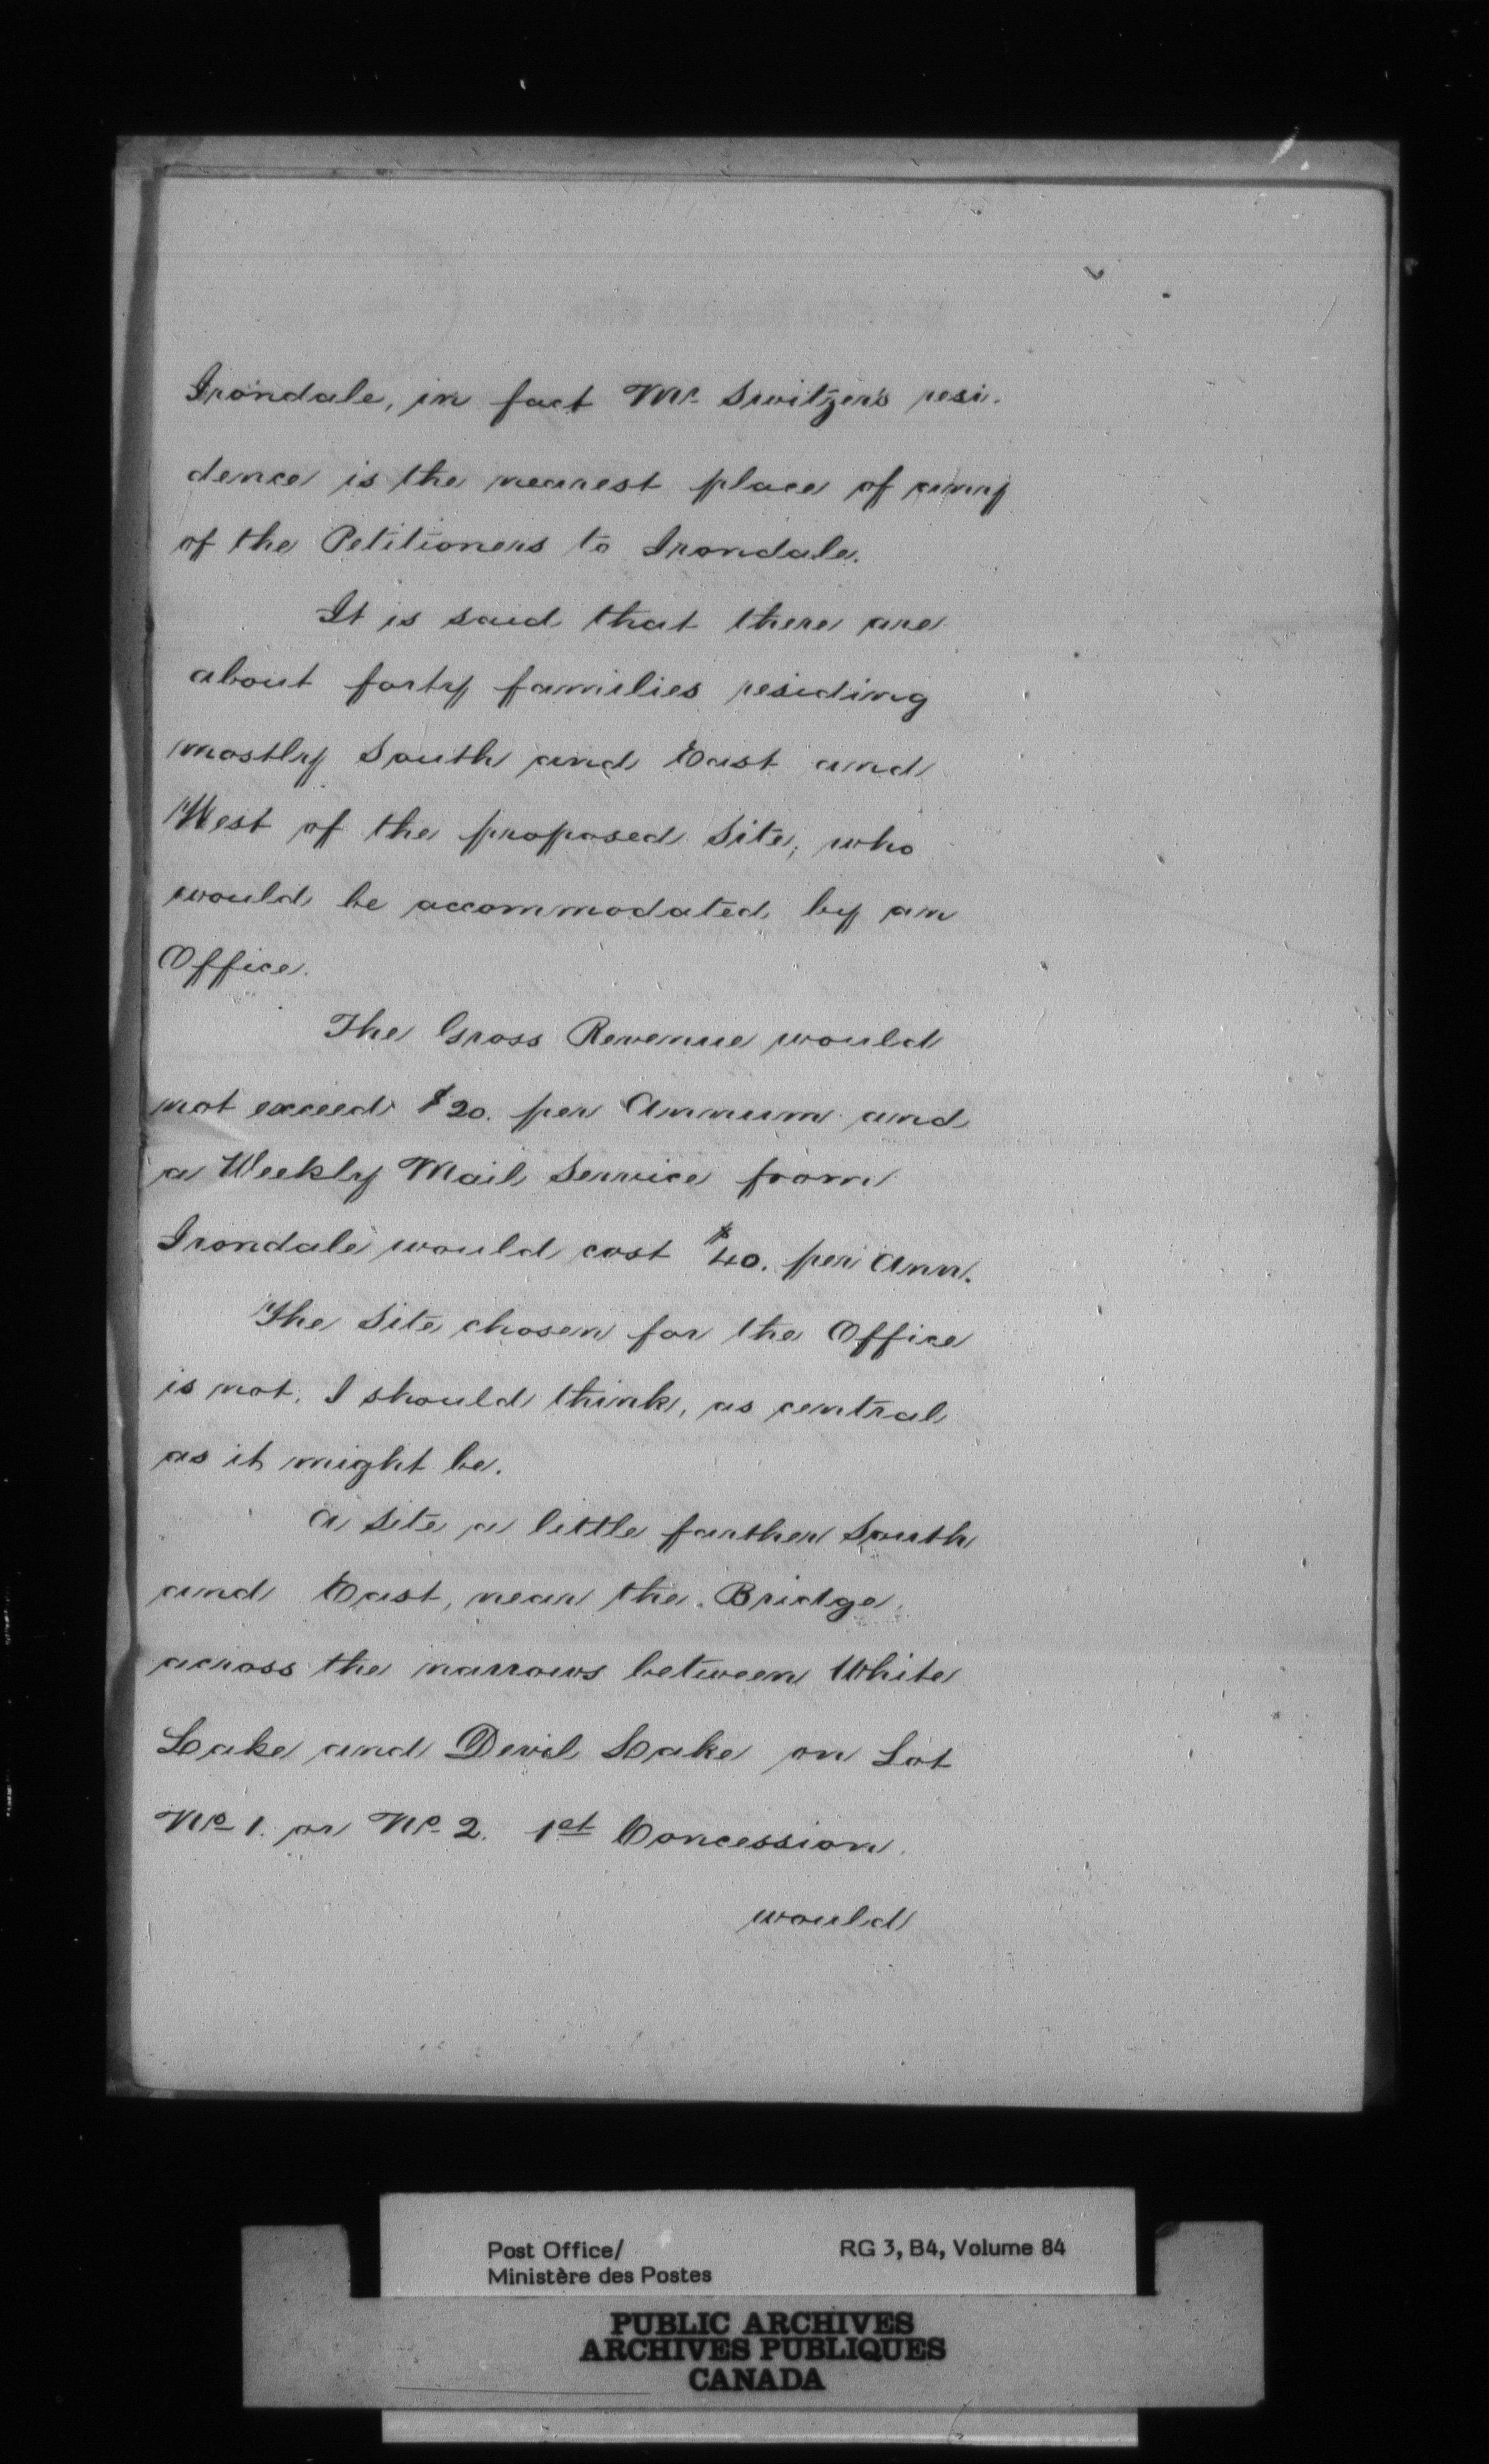 Irondale, in fact Mr. Switzer's resi-
dence is the nearest place of any
of the Petitioners to Irondale.
It is said that there are
about forty families residing
mostly South and East and
West of the proposed Site, who
would be accommodated by an
Office.
The Gross Revenue would
not exceed $20. per Annum and
a Weekly Mail Service from
Irondale would cost $40. per Ann.
The Site chosen for the Office
is not, I should think, as central
as it might be.
A Site a little farther South
and East, near the Bridge
across the narrows between White
Lake and Devil Lake on Lot
No. 1. or No. 2. 1st Concession
would
Post Office/
Ministère des Postes
RG 3, B4, Volume 84
PUBLIC ARCHIVES
ARCHIVES PUBLIQUES
CANADA